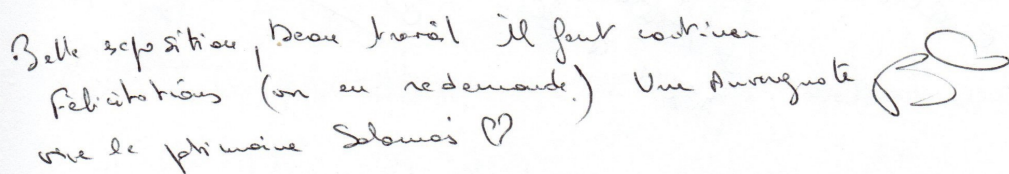 Belle exposition, Beau travail Il faut continuer
Félicitations (on en redemande.) Une Auvergnate
vive le patrimoine Salomas ♡